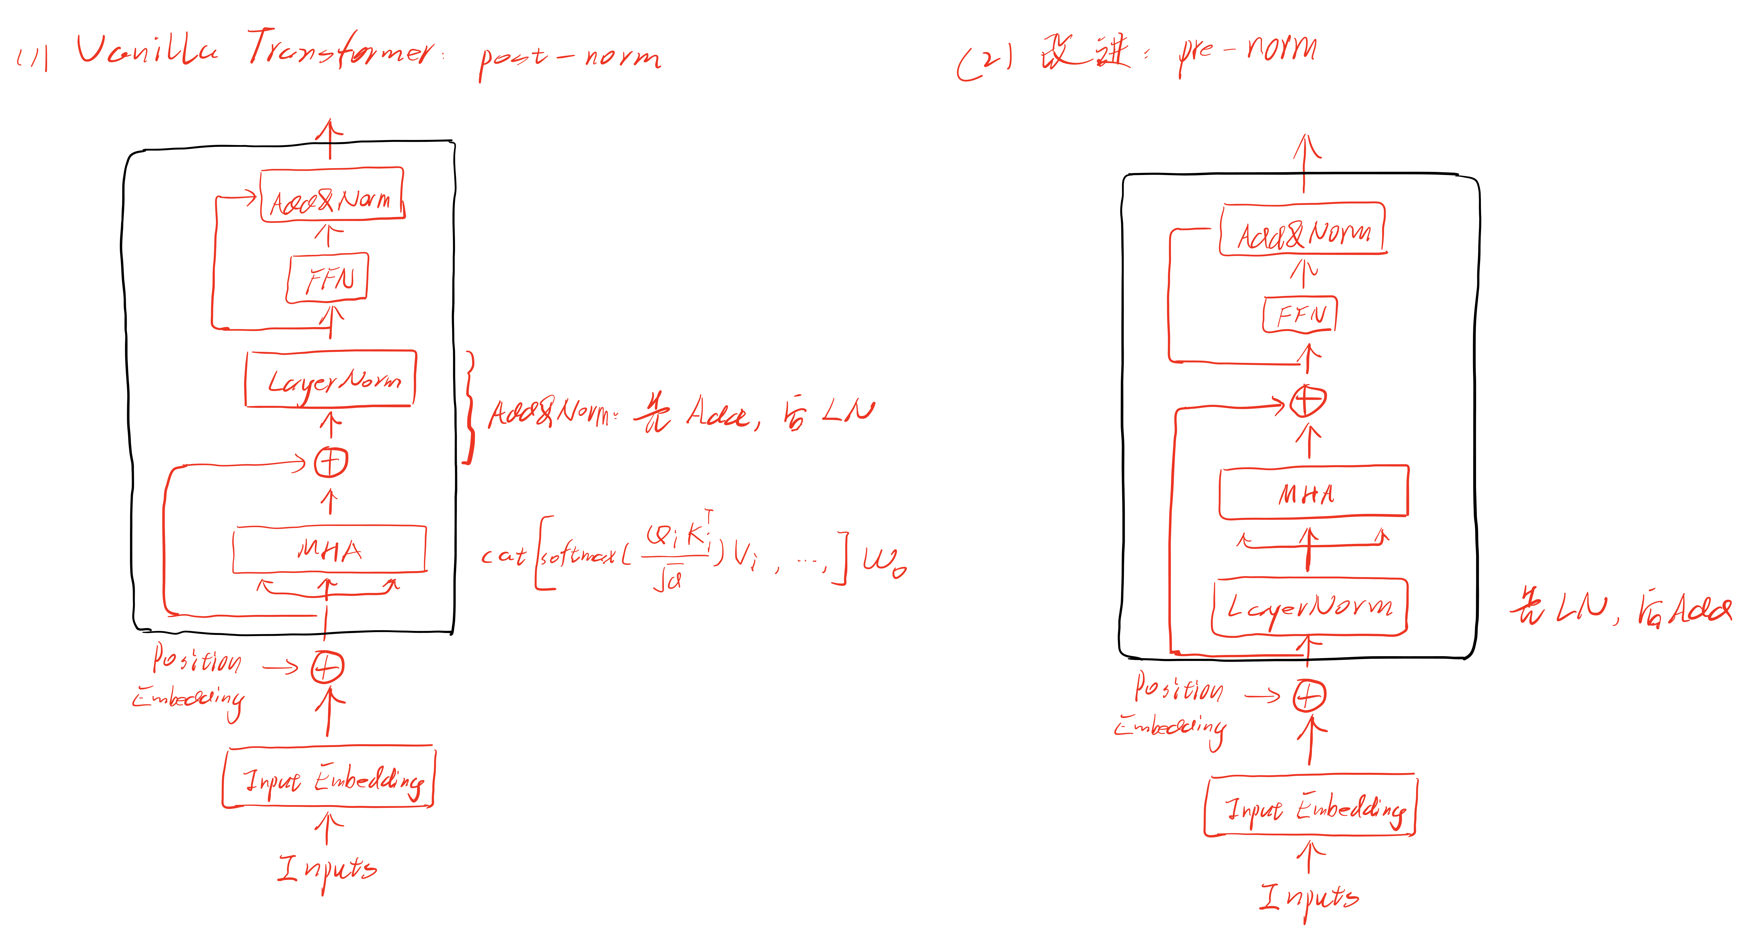 (1) Vanilla Transformer: post-norm
Add&Norm
FFN
LayerNorm
Add&Norm: 先 Add, 后 LN
MHA
cat[softmax(QᵢKᵢᵀ/√d)Vᵢ, ..., ]W₀
Position
Embedding
Input Embedding
Inputs
(2) 改进: pre-norm
Add&Norm
FFN
MHA
LayerNorm
先 LN, 后 Add
Position
Embedding
Input Embedding
Inputs